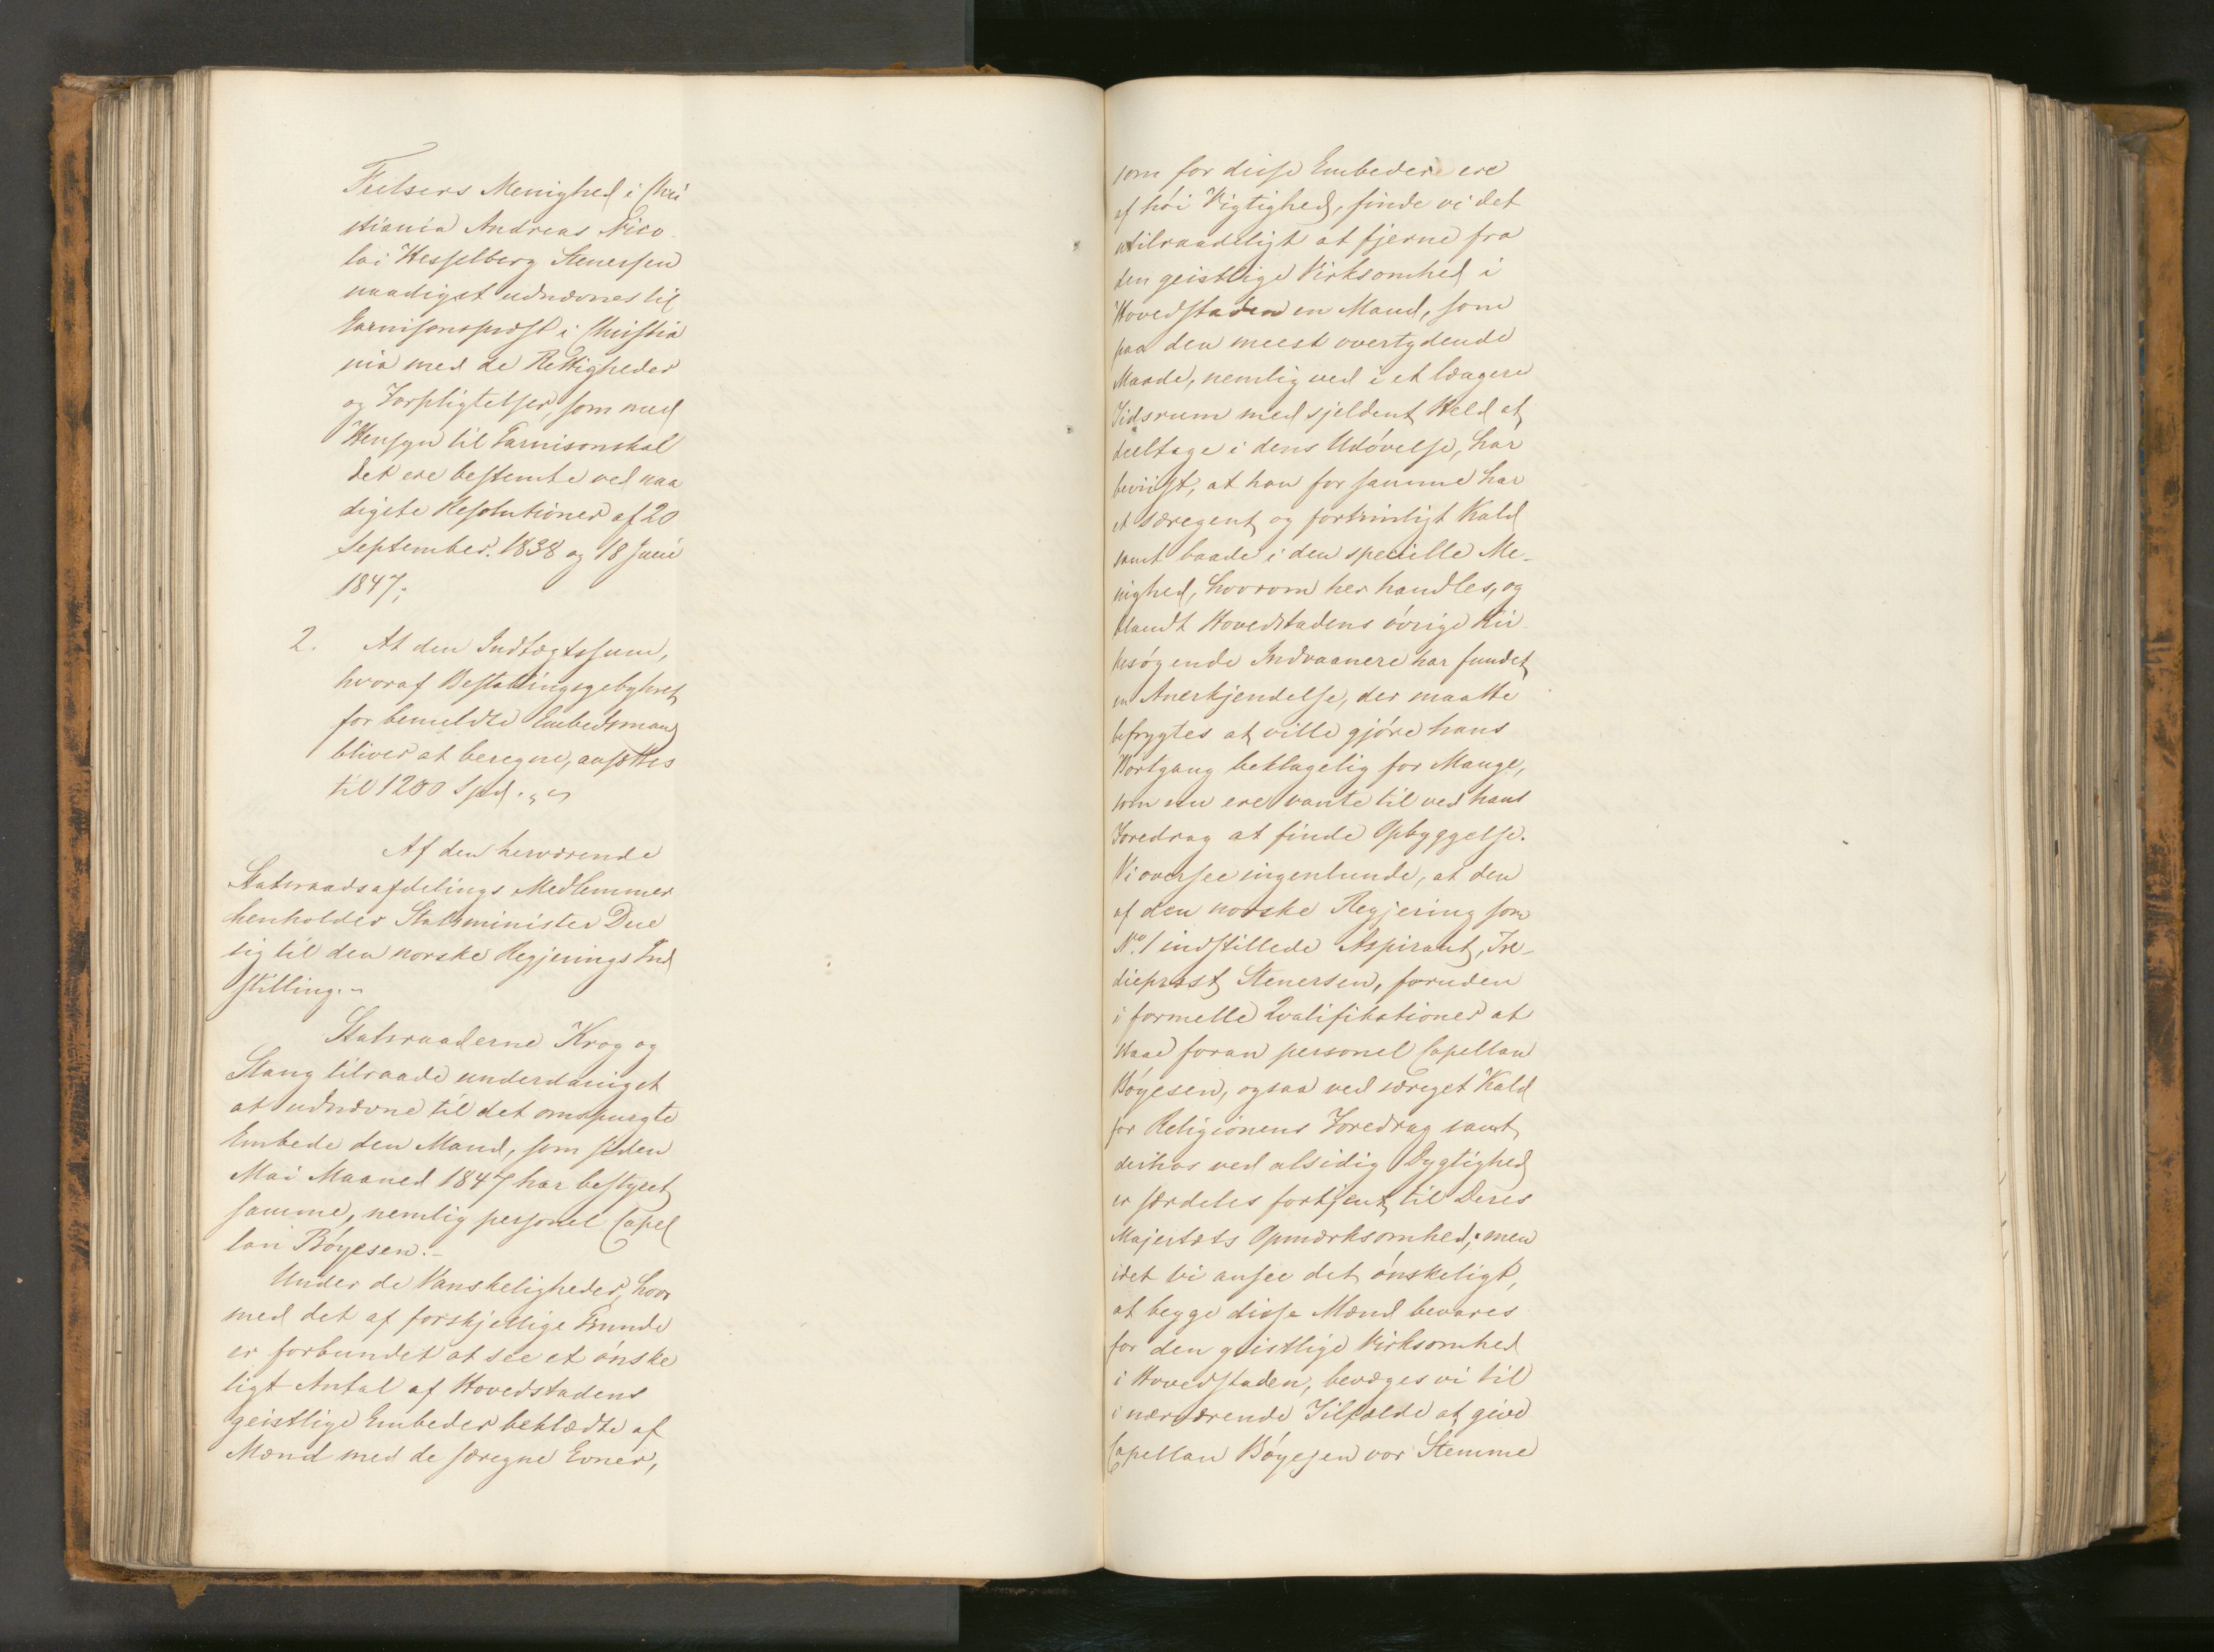 Frelsers Menighed i Chri
stiania Andreas Nico
lai Hesselberg Stenersen
naadigst udnævnes til
Garnisonspræst i Christia
nia med de Rettigheder
og Forpligtelser, som med
Hensyn til Garnisonskal
det ere bestemte ved naa
digste Resolutioner af 20
September. 1838 og 18 Juni
1847;
2. At den Indtægtssum,
hvoraf Bestallingsgebyhret
for bemeldte Embedsmand
bliver at beregne, ansættes
til 1200 Spd.
Af den herværende
Statsraadsafdelings Medlemmer
henholder Statsminister Due
sig til den norske Regjerings Ind
stilling.-
Statsraaderne Krog og
Stang tilraade underdanigst
at udnævne til det omspurgte
Embede den Mand, som siden
Mai Maaned 1847 har bestyret
samme, nemlig personel Capel
lan Böyesen.-
Under de Vanskeligheder, hvor
med det af forskjellige Grunde
er forbundet at see et önske
ligt Antal af Hovedstadens
geistlige Embeder beklædte af
Mænd med de særegne Evner,
som for disse Embeder ere
af höi Vigtighed, finde vi det
utilraadeligt at fjerne fra
den geistlige Virksomhed i
Hovedstaden en Mand, som
paa den meest overtydende
Maade, nemlig ved i et længere
Tidsrum med sjeldent Held at
deeltage i dens Udövelse, har
beviist, at han for samme har
et særegent og fortrinligt Kald
samt baade i den specielle Me-
nighed, hvorom her handles, og
blandt Hovedstadens övrige Kir
kesögende Indvaanere har fundet
en Anerkjendelse, der maatte
befrygtes at ville gjöre hans
Bortgang beklagelig for Mange,
som nu ere vante til ved hans
Foredrag at finde Opbyggelse.
Vi oversee ingenlunde, at den
af den norske Regjering som
No. 1 indstillede Aspirant, Tre-
diepræst Stenersen, foruden
i formelle Qvalifikationer at
staae foran personel Capellan
Böyesen, ogsaa ved særeget Kald
for Religionens Foredrag samt
derhos ved alsidig Dygtighed
er særdeles fortjent til Deres
Majestæts Opmærksomhed; men
idet vi ansee det önskeligt,
at begge disse Mænd bevares
for den geistlige Virksomhed
i Hovedstaden, bevæges vi til
i nærværende Tilfælde at give
Capellan Böyesen vor Stemme